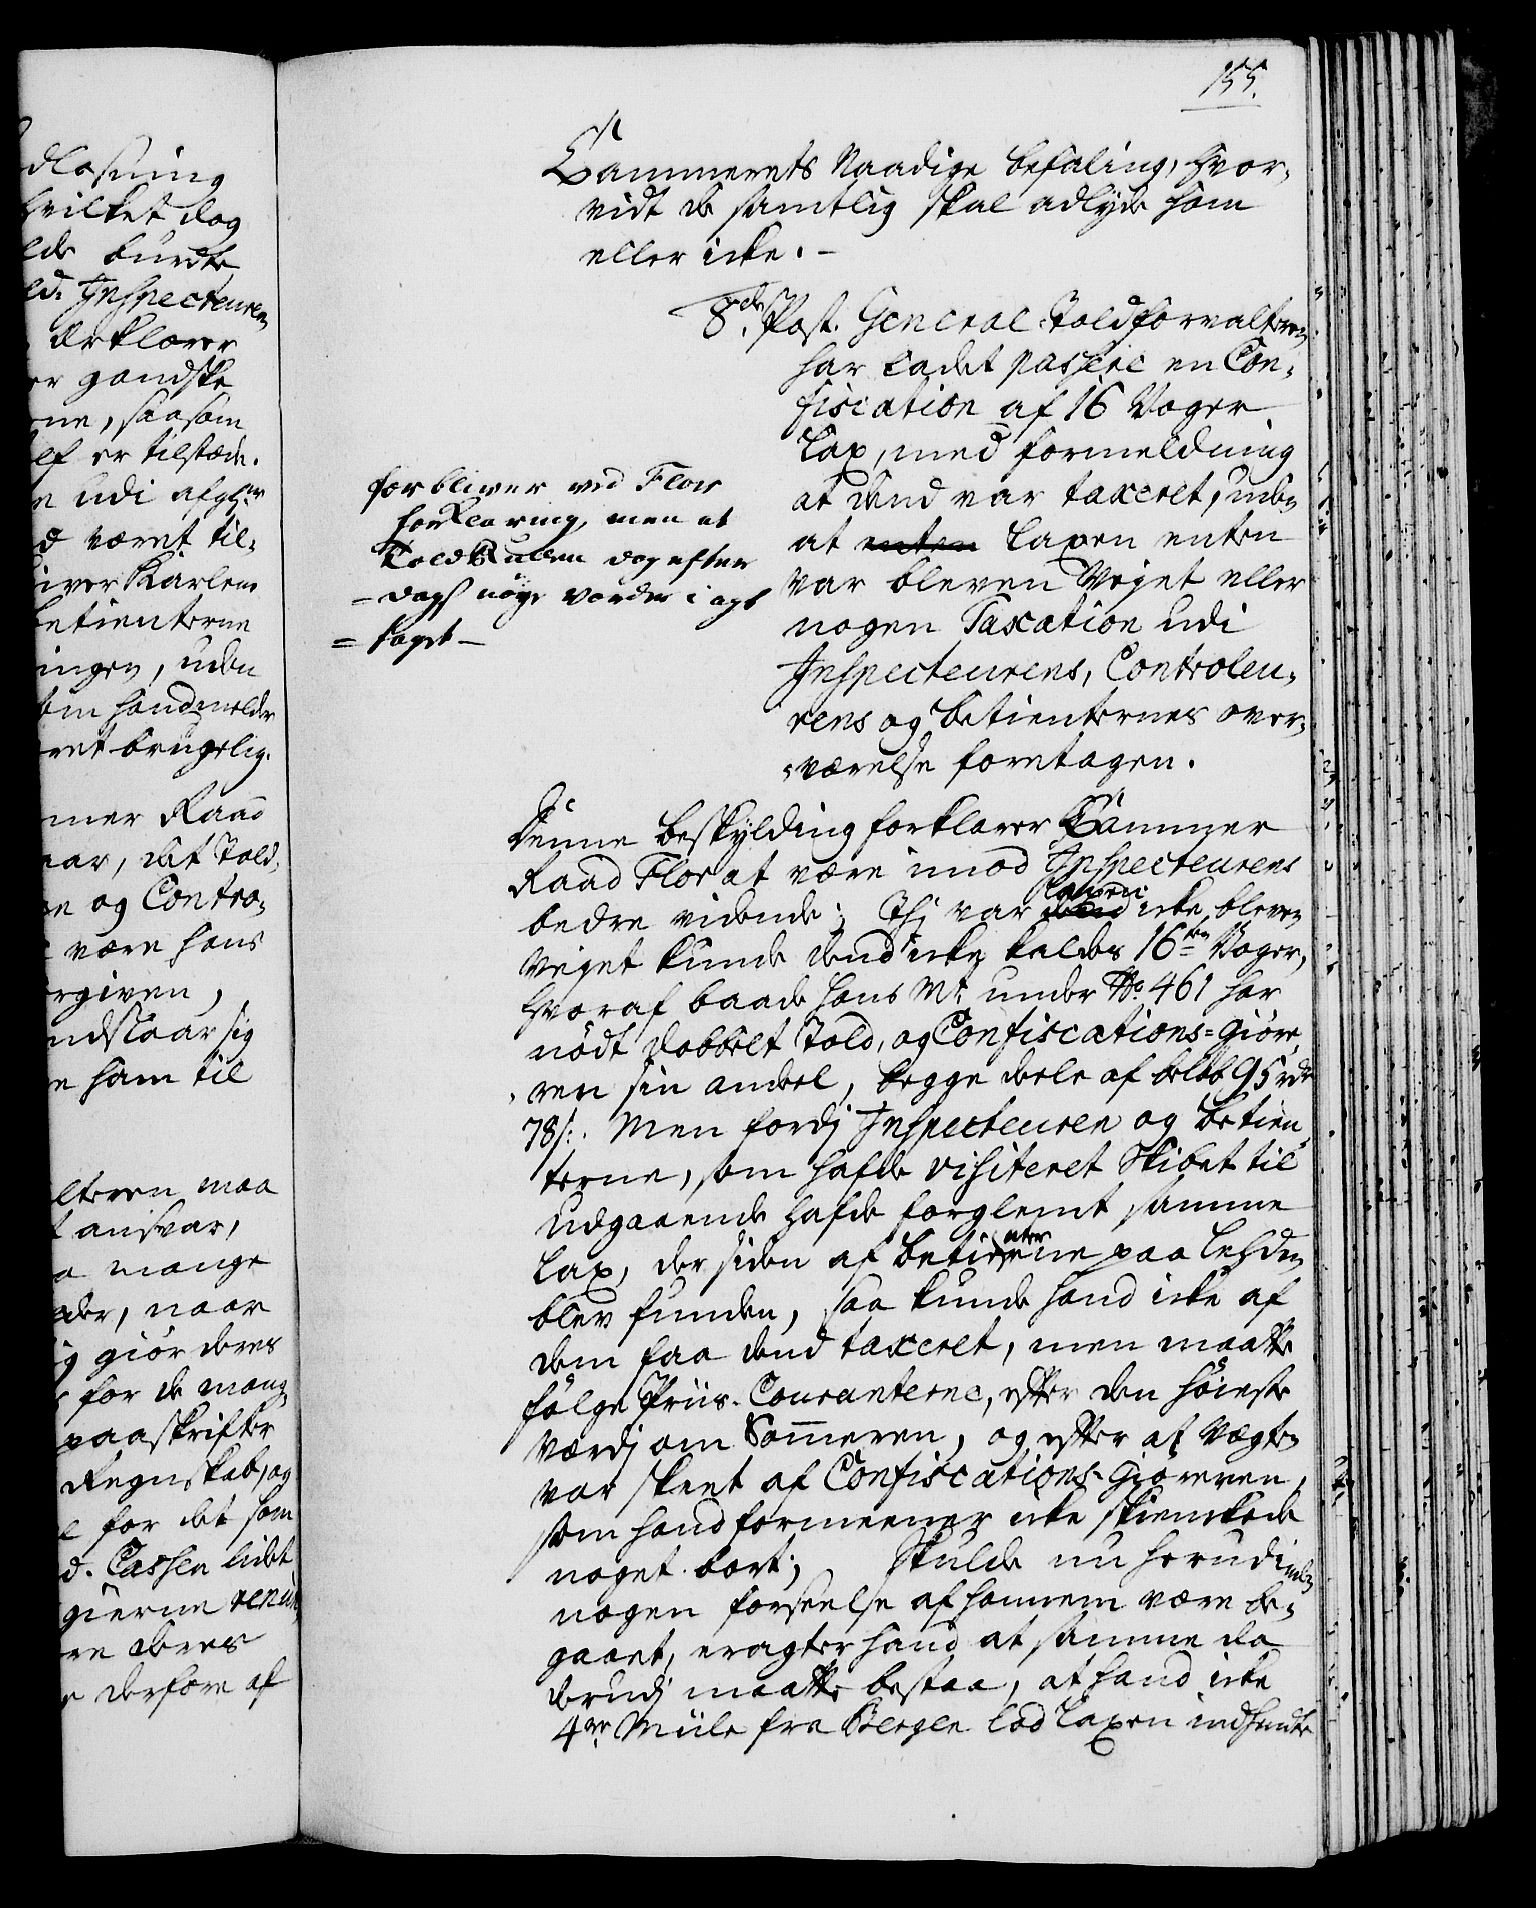 155.
dlosning
hvilket dog
lde burde
ld. Inspecteuren
Erklærer
er gandske
ne, saasom
elf er tilstæde.
e udi afgh:r
d været til-
iver Karlene
betienterne
ingen, uden
om hand melder
ret brugelig.
mer Raad
aar, det Told-
ne og Contro-
være hans
rgiven,
ndstaar sig
e ham til
lteren maa
t ansvar,
a mange
der, naar
ig giör deres
for de mang-
paaskrifter
Regnskab, og
e for det som
d. Cassen lidet
gierne
re deres
e derfore af
Cammerets Naadige befaling, hvor-
vidt de samtlig skal adlyde ham
eller icke. -
8de Post. General-Toldforvalteren
har ladet passere en Con-
fiscation af 16 Voger
Lax, med formeldning
at dend var taxeret, uden
at enten Laxen enten
var bleven Vejet eller
nogen Taxation udi
Inspecteurens, Controleu-
rens og betienternes over-
-værelse foretagen.
forbliver ved Flors
forklaring, men at
Told Rullen dog efter
- dags nöye vorder i agt
= taget -
Denne beskylding forklarer Cammer
Raad Flor at være imod Inspecteurens
bedre vidende; Thj var dend Laxen icke bleven
Vejet kunde dend icke kaldes 16ten Voger,
hvoraf baade hans Mt. under No. 461 har
nödt dobbelt Told, og Confiscations-giöre-
ren sin andeel, begge deele af belöb 95 rdr
78 s:. Men fordj Inspecteuren og betien-
terne, som hafde visiteret Skibet til
udgaaende hafde forglemt samme
Lax, der siden af betienterne paa
blev funden, saa kunde hand icke af
dem faa dend taxeret, men maatte
fölge Priis-Couranterne, efter den höieste
værdj om Som̄eren, og efter at Vægten
var skeet af Confiscations-Giöreren,
som hand formeener icke skienckede
noget bort; Skulde nu herudinden
nogen forseelse af hannem være be-
gaaet, eragter hand at samme da
derudj maatte bestaa, at hand icke
4re Miile fra Bergen lod Laxen indhendte